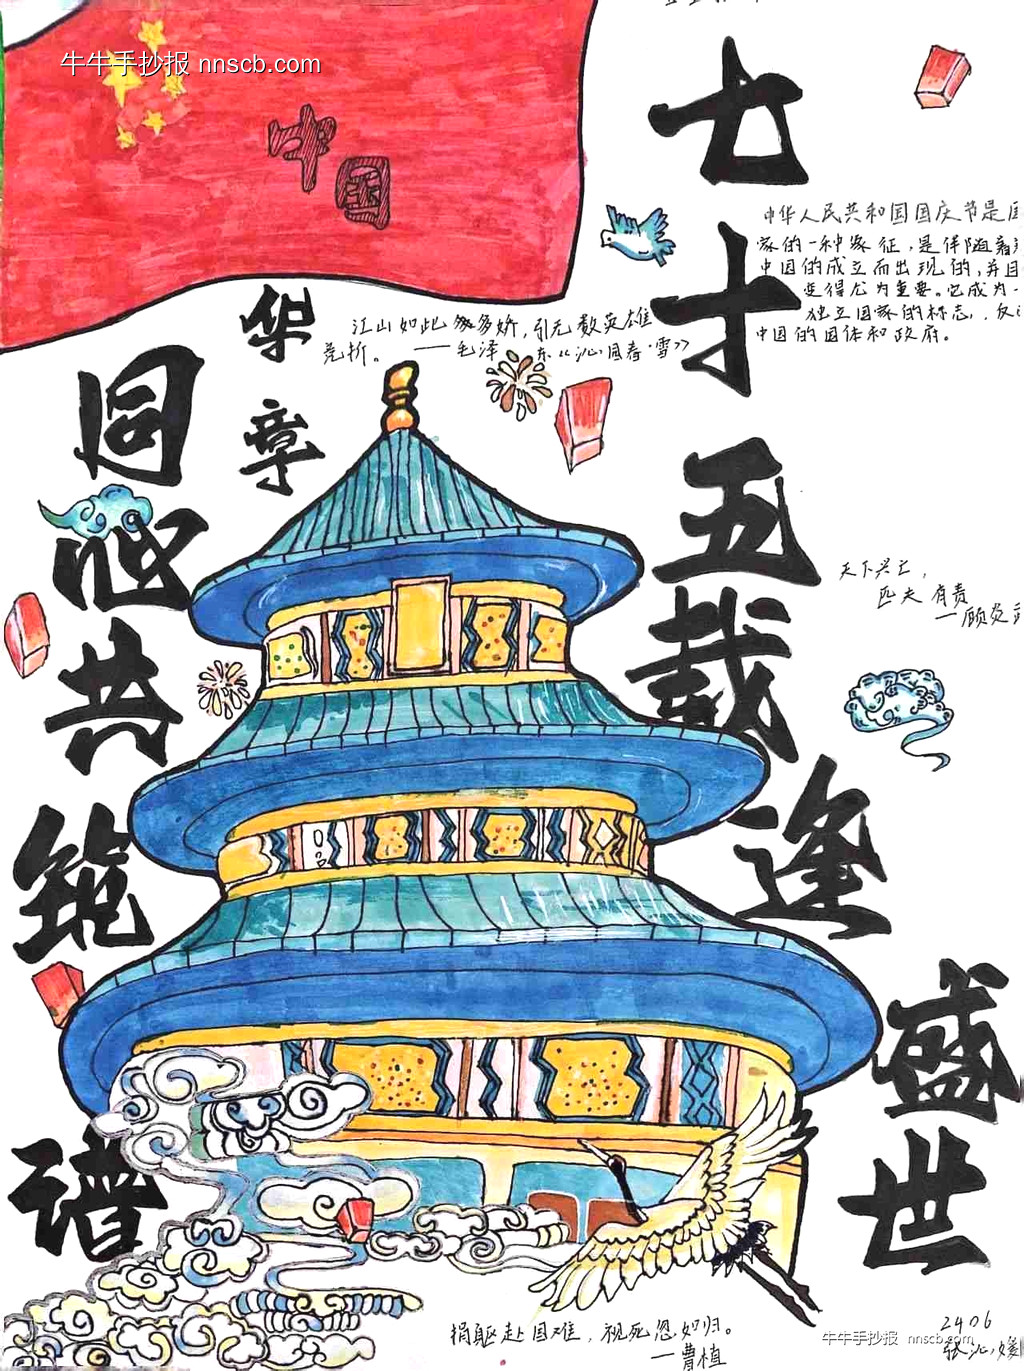 牛牛手抄报 nnscb.com
中国
七十五载逢盛世
中华人民共和国国庆节是国
家的一种象征,是伴随着新
中国的成立而出现的,并且
变得尤为重要。它成为一
独立国家的标志,反
中国的国体和政府。
江山如此多娇,引无数英雄
竞折。——毛泽东《沁园春·雪》
华章
同心共筑谱
天下兴亡,
匹夫有责
—顾炎
捐躯赴国难,视死忽如归。
—曹植
2406
张沁媛
牛牛手抄报 nnscb.com